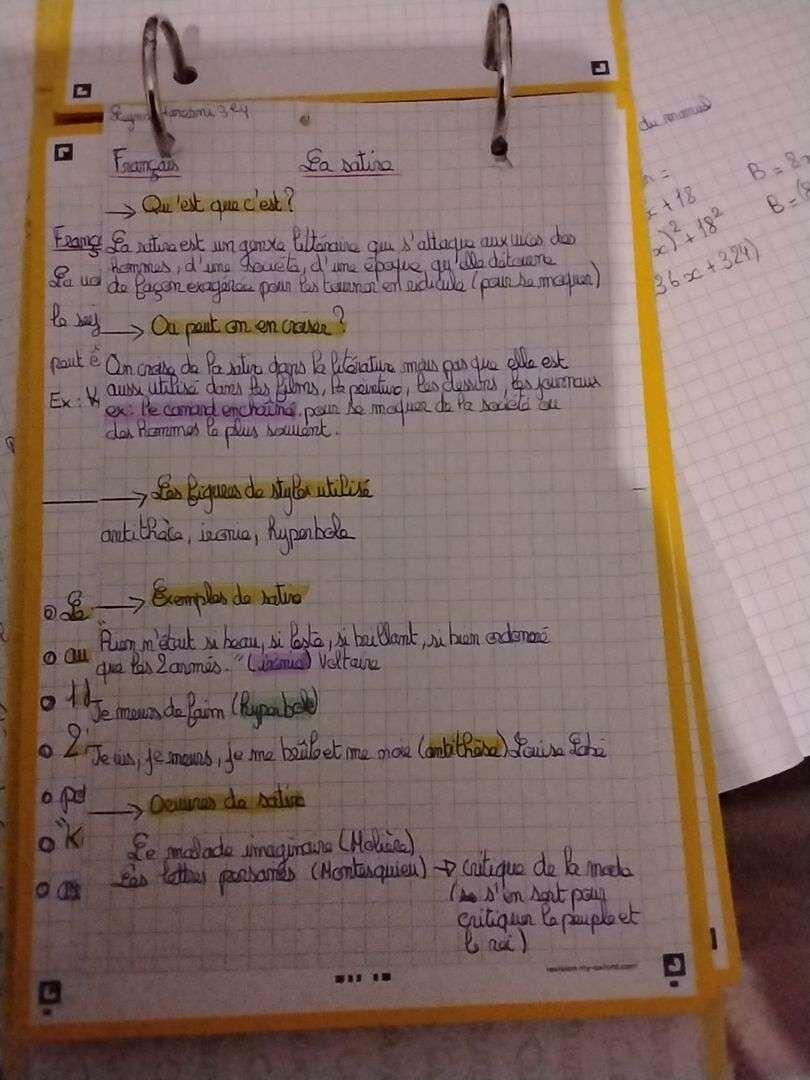 3e4
Français La satire
→ Qu'est que c'est?
La satire est un genre littéraire qui s'attaque aux vices des
hommes, d'une société, d'une époque, qu'elle détourne
de façon exagérée pour les tourner en ridicule (pour se moquer)
→ Ou peut on en croiser?
On croise de la satire dans la litérature mais pas que elle est
aussi utilisé dans les films, la peinture, les dessins, les journaux
ex: le canard enchaîné, pour se moquer de la société ou
des hommes le plus souvent.
→ Les figures de styles utilisé
antithèse, ironie, hyperbole
→ Exemples de satire
"Rien n'était si beau, si leste, si brillant, si bien ordonné
que les 2 armés." (ironie) Voltaire
Je meurs de faim (hyperbole)
Je vis, je meurs, je me brûle et me noie (antithèse) Louise Labé
→ Oeuvres de satire
Le malade imaginaire (Molière)
Les lettres persanes (Montesquieu) → critique de la mode
(s'en sert pour
critiquer le peuple et
le roi)
Franç
le suj
peut ê
Ex:
Le
au
1
2
pet
du manuel
x + 18
x)² + 18²
36x + 324)
B = 8
B = (8